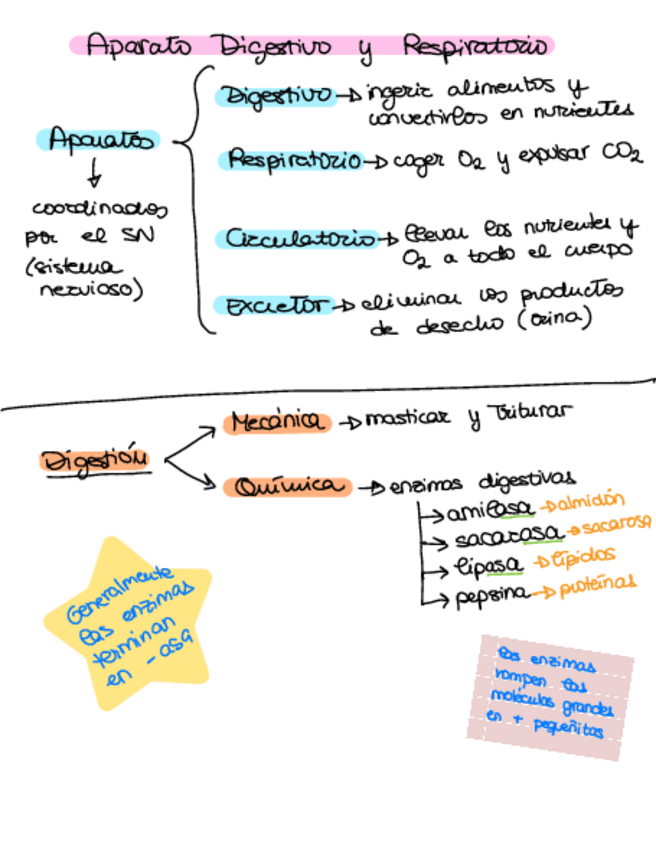 Aparato Digestivo y Respiratorio
Aparatos
↓
coordinados
por el SN
(sistema
nervioso)
Digestivo → ingerir alimentos y
convertirlos en nutrientes
Respiratorio → coger O₂ y expulsar CO₂
Circulatorio → llevar los nutrientes y
O₂ a todo el cuerpo
Excretor → eliminar los productos
de desecho (orina)
Digestión
Mecánica → masticar y triturar
Química → enzimas digestivas
→ amilasa → almidón
→ sacarasa → sacarosa
→ lipasa → lípidos
→ pepsina → proteínas
Generalmente
las enzimas
terminan
en -asa
las enzimas
rompen las
moléculas grandes
en + pequeñitas